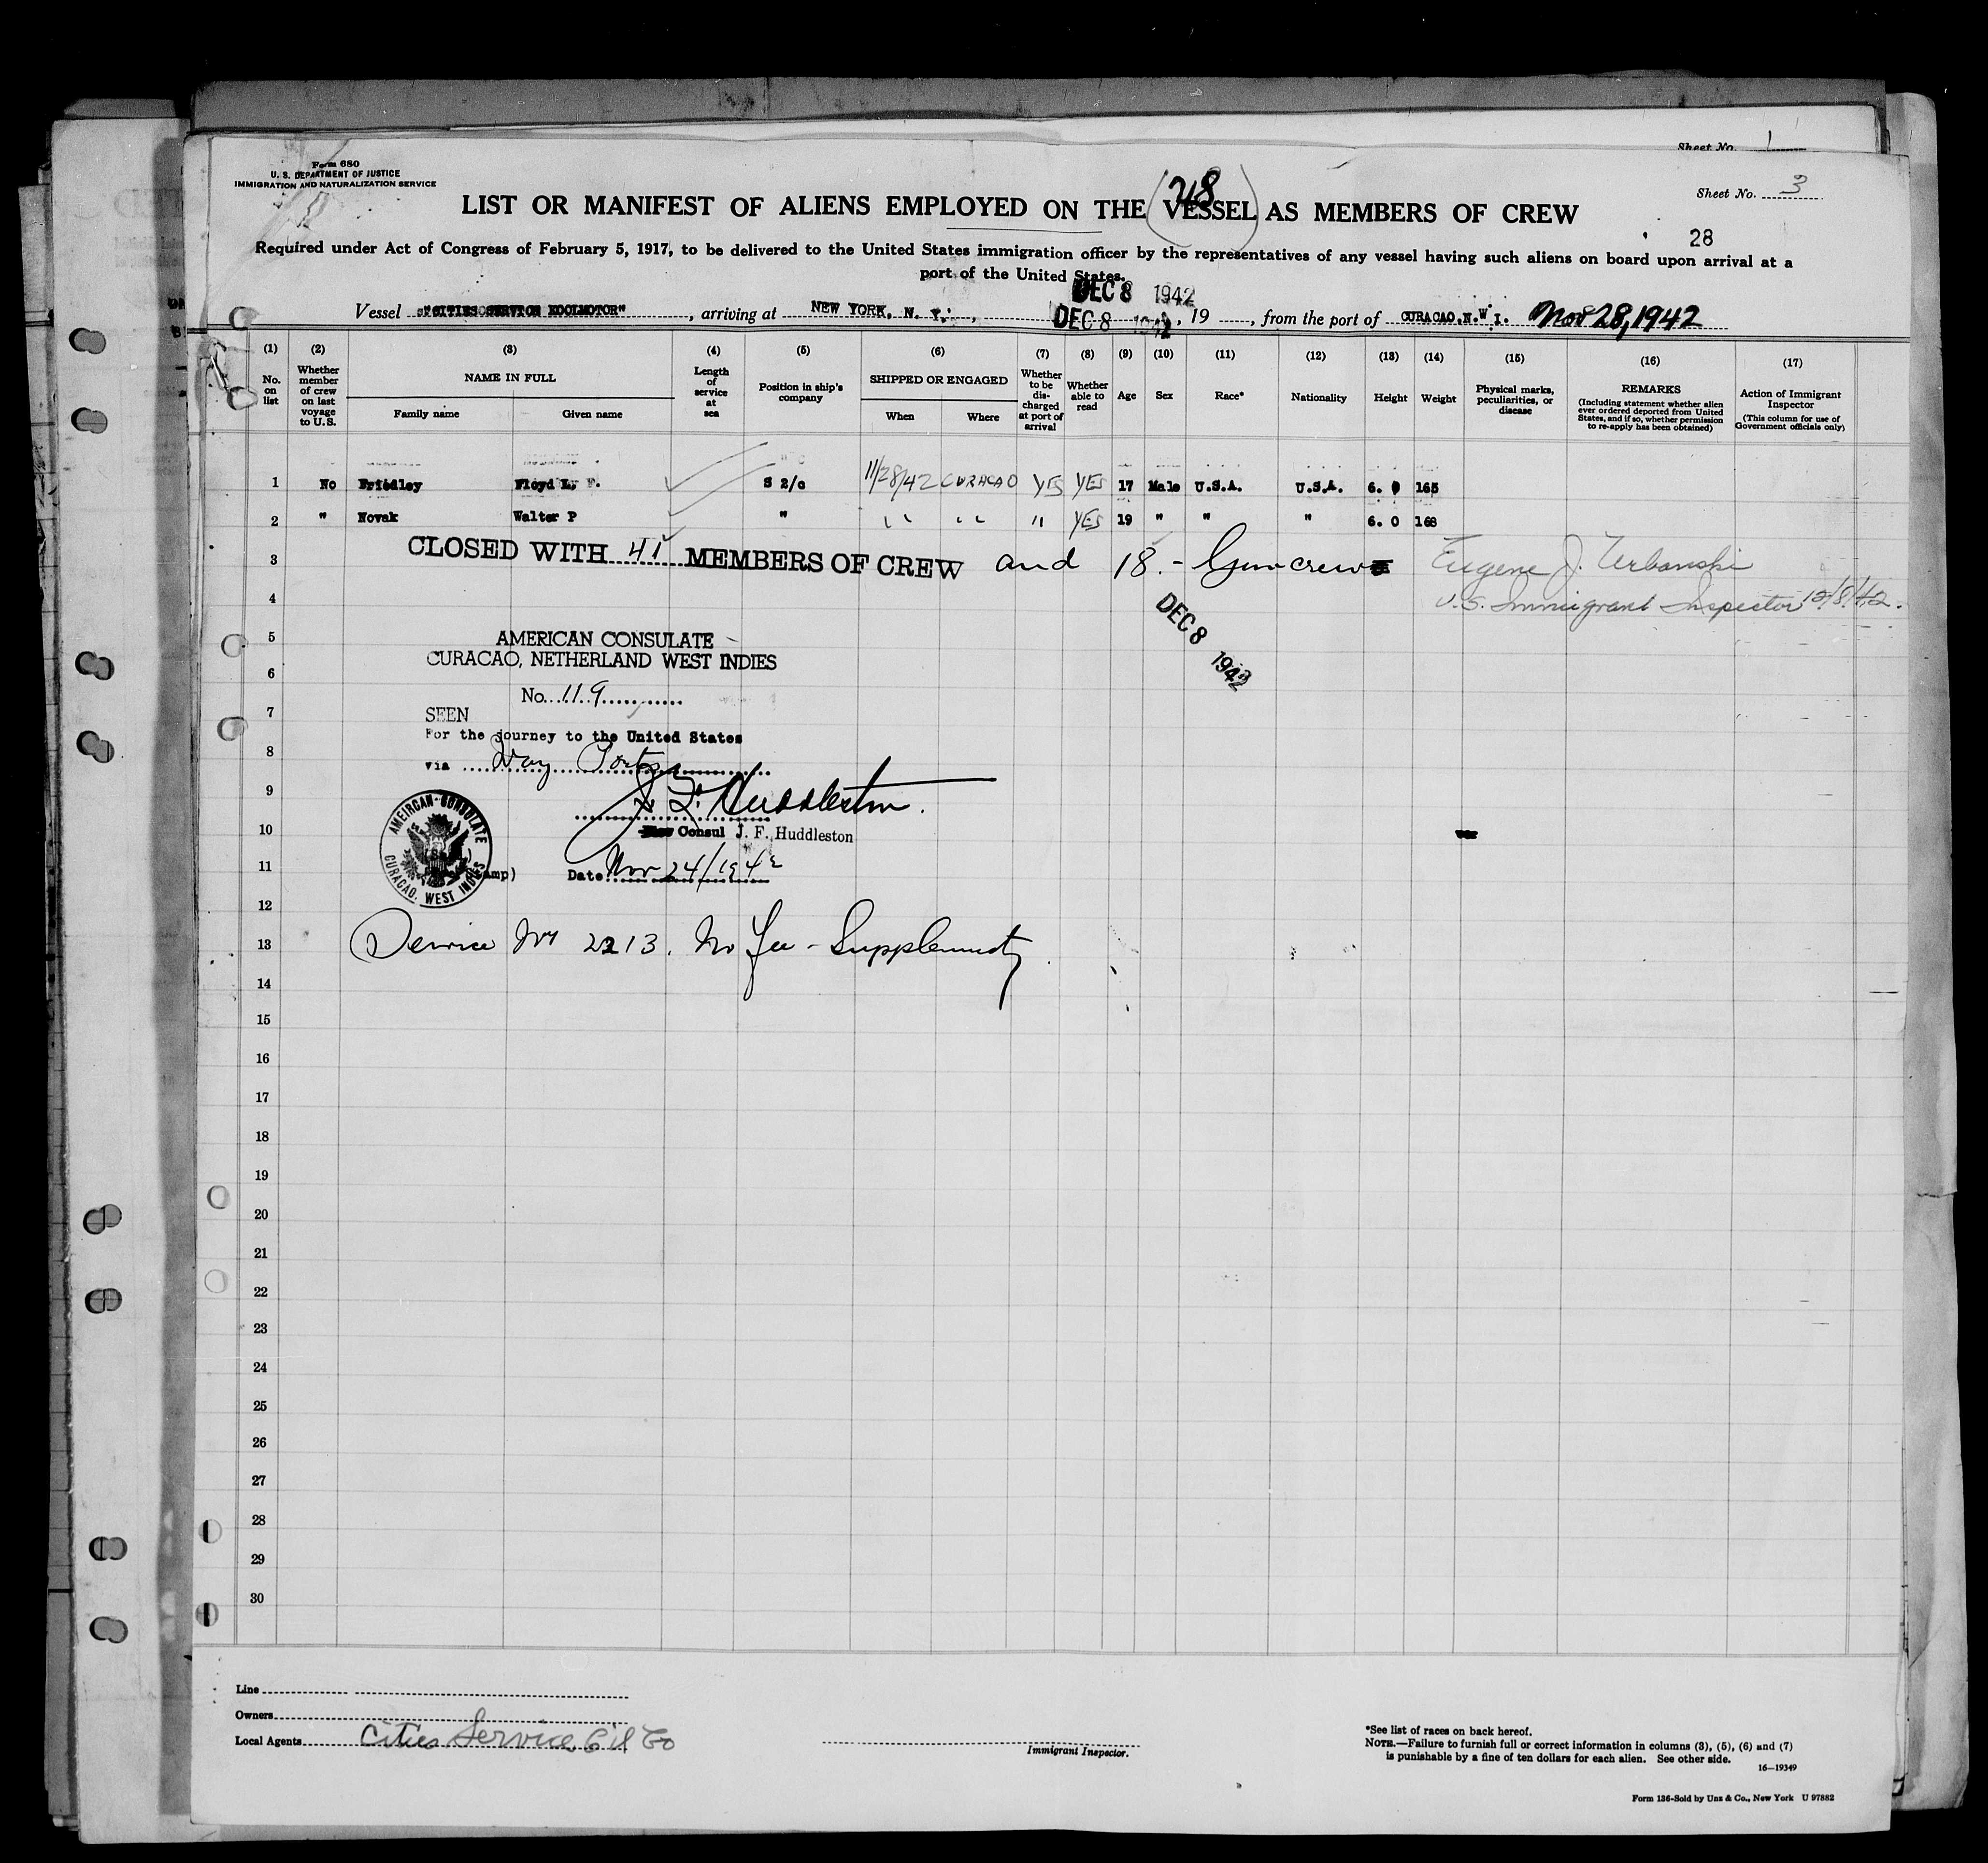 Sheet No. 1
Form 680
U. S. DEPARTMENT OF JUSTICE
IMMIGRATION AND NATURALIZATION SERVICE
Sheet No. 3
(28)
LIST OR MANIFEST OF ALIENS EMPLOYED ON THE VESSEL AS MEMBERS OF CREW
28
Required under Act of Congress of February 5, 1917, to be delivered to the United States immigration officer by the representatives of any vessel having such aliens on board upon arrival at a
port of the United States.
DEC 8 1942
Vessel "CITIES SERVICE KOOLMOTOR", arriving at NEW YORK, N. Y., DEC 8 1942, 19, from the port of CURACAO, N.W.I. Nov 28, 1942
(1) (2) (3) (4) (5) (6) (7) (8) (9) (10) (11) (12) (13) (14) (15) (16) (17)
No. on list
Whether member of crew on last voyage to U.S.
NAME IN FULL
Family name
Given name
Length of service at sea
Position in ship's company
SHIPPED OR ENGAGED
When
Where
Whether to be discharged at port of arrival
Whether able to read
Age
Sex
Race*
Nationality
Height
Weight
Physical marks, peculiarities, or disease
REMARKS
(Including statement whether alien ever ordered deported from United States, and if so, whether permission to re-apply has been obtained)
Action of Immigrant Inspector
(This column for use of Government officials only)
1 No Friedley Floyd L. F. S 2/c 11/28/42 CURACAO YES YES 17 Male U.S.A. U.S.A. 6. 0 165
2 " Novak Walter P " " " " YES 19 " " " 6. 0 168
3 CLOSED WITH 41 MEMBERS OF CREW and 18.- Gun crew Eugene J. Urbanski
4 U.S. Immigrant Inspector 12/8/42.
DEC 8 1942
5 AMERICAN CONSULATE
CURACAO, NETHERLAND WEST INDIES
6
No. 119
7 SEEN
For the journey to the United States
8 via Way Ports
9 J. F. Huddleston.
10 Consul J. F. Huddleston
AMERICAN CONSULATE
CURACAO, WEST INDIES
11 Date Nov 24/1942
12
13 Service No 2213. No fee - Supplementy
14
15
16
17
18
19
20
21
22
23
24
25
26
27
28
29
30
Line
Owners
Local Agents Cities Service Oil Co
Immigrant Inspector.
*See list of races on back hereof.
NOTE.—Failure to furnish full or correct information in columns (3), (5), (6) and (7)
is punishable by a fine of ten dollars for each alien. See other side.
16—19349
Form 136-Sold by Unz & Co., New York U 97882